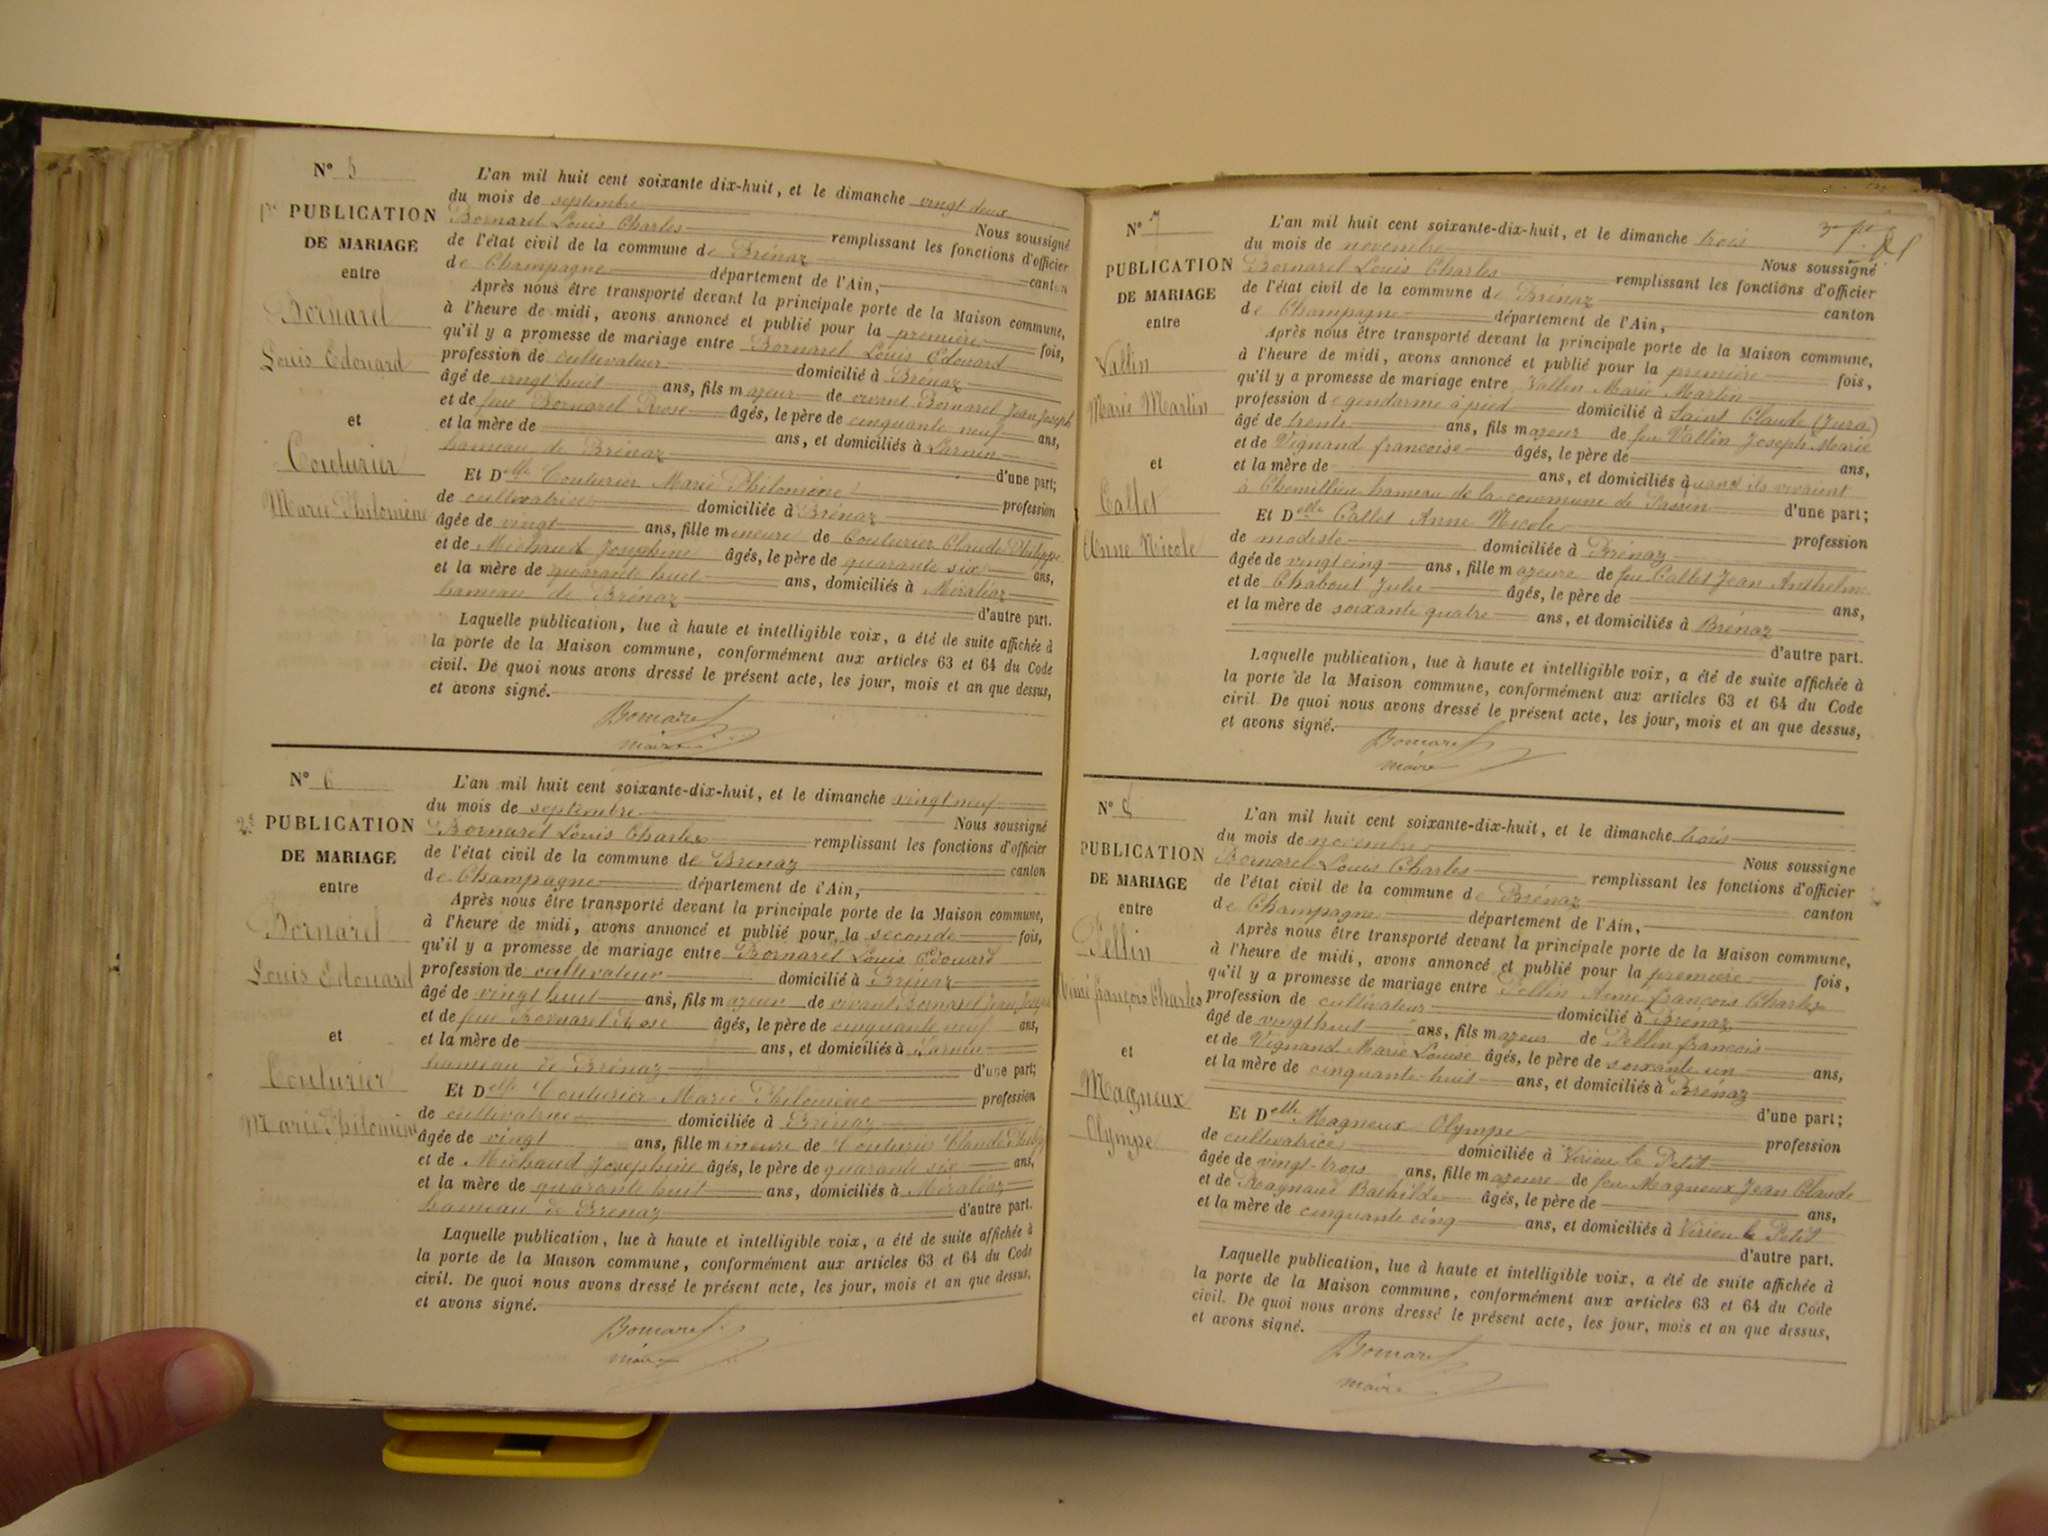 N° 5
1re PUBLICATION
DE MARIAGE
entre
Bornarel
Louis Edouard
et
Couturier
Marie Philomène
L'an mil huit cent soixante dix-huit, et le dimanche vingt deux
du mois de septembre Nous soussigné
Bornarel Louis Charles remplissant les fonctions d'officier
de l'état civil de la commune de Brénaz canton
de Champagne département de l'Ain,
Après nous être transporté devant la principale porte de la Maison commune,
à l'heure de midi, avons annoncé et publié pour la première fois,
qu'il y a promesse de mariage entre Bornarel Louis Edouard
profession de cultivateur domicilié à Brénaz
âgé de vingt huit ans, fils majeur de vivant Bornarel Jean Joseph
et de feue Bornarel Rose âgés, le père de cinquante neuf ans,
et la mère de ans, et domiciliés à
hameau de Brénaz d'une part;
Et Delle Couturier Marie Philomène profession
de cultivatrice domiciliée à Brénaz
âgée de vingt ans, fille mineure de Couturier Claude Philippe
et de Michaud Josephine âgés, le père de quarante six ans,
et la mère de quarante huit ans, domiciliés à Méraléaz
hameau de Brénaz d'autre part.
Laquelle publication, lue à haute et intelligible voix, a été de suite affichée à
la porte de la Maison commune, conformément aux articles 63 et 64 du Code
civil. De quoi nous avons dressé le présent acte, les jour, mois et an que dessus,
et avons signé.
Bornarel
maire
N° 6
2e PUBLICATION
DE MARIAGE
entre
Bornarel
Louis Edouard
et
Couturier
Marie Philomène
L'an mil huit cent soixante-dix-huit, et le dimanche vingt neuf
du mois de septembre Nous soussigné
Bornarel Louis Charles remplissant les fonctions d'officier
de l'état civil de la commune de Brénaz canton
de Champagne département de l'Ain,
Après nous être transporté devant la principale porte de la Maison commune,
à l'heure de midi, avons annoncé et publié pour la seconde fois,
qu'il y a promesse de mariage entre Bornarel Louis Edouard
profession de cultivateur domicilié à Brénaz
âgé de vingt huit ans, fils majeur de vivant Bornarel Jean Joseph
et de feue Bornarel Rose âgés, le père de cinquante neuf ans,
et la mère de ans, et domiciliés à
hameau de Brénaz d'une part;
Et Delle Couturier Marie Philomène profession
de cultivatrice domiciliée à Brénaz
âgée de vingt ans, fille mineure de Couturier Claude Philippe
et de Michaud Josephine âgés, le père de quarante six ans,
et la mère de quarante huit ans, domiciliés à Méraléaz
hameau de Brénaz d'autre part.
Laquelle publication, lue à haute et intelligible voix, a été de suite affichée à
la porte de la Maison commune, conformément aux articles 63 et 64 du Code
civil. De quoi nous avons dressé le présent acte, les jour, mois et an que dessus.
et avons signé.
Bornarel
maire
N° 7
PUBLICATION
DE MARIAGE
entre
Vallin
Marie Martin
et
Callet
Anne Nicole
L'an mil huit cent soixante-dix-huit, et le dimanche trois
du mois de novembre Nous soussigné
Bornarel Louis Charles remplissant les fonctions d'officier
de l'état civil de la commune de Brénaz canton
de Champagne département de l'Ain,
Après nous être transporté devant la principale porte de la Maison commune,
à l'heure de midi, avons annoncé et publié pour la première fois,
qu'il y a promesse de mariage entre Vallin Marie Martin
profession de gendarme à pied domicilié à Saint Claude (Jura)
âgé de trente ans, fils majeur de feu Vallin Joseph Marie
et de Vignand françoise âgés, le père de ans,
et la mère de ans, et domiciliés quand ils vivaient
à Chemillieu hameau de la commune de Passin d'une part;
Et Delle Callet Anne Nicole profession
de modiste domiciliée à Brénaz
âgée de vingt cinq ans, fille majeure de feu Callet Jean Anthelme
et de Chaboud Julie âgés, le père de ans,
et la mère de soixante quatre ans, et domiciliés à Brénaz
d'autre part.
Laquelle publication, lue à haute et intelligible voix, a été de suite affichée à
la porte de la Maison commune, conformément aux articles 63 et 64 du Code
civil. De quoi nous avons dressé le présent acte, les jour, mois et an que dessus,
et avons signé.
Bornarel
maire
N° 8
PUBLICATION
DE MARIAGE
entre
Pellin
Aimé françois Charles
et
Magneux
Olympe
L'an mil huit cent soixante-dix-huit, et le dimanche trois
du mois de novembre Nous soussigné
Bornarel Louis Charles remplissant les fonctions d'officier
de l'état civil de la commune de Brénaz canton
de Champagne département de l'Ain,
Après nous être transporté devant la principale porte de la Maison commune,
à l'heure de midi, avons annoncé et publié pour la première fois,
qu'il y a promesse de mariage entre Pellin Aimé françois Charles
profession de cultivateur domicilié à Brénaz
âgé de vingt huit ans, fils majeur de Pellin françois
et de Vignand Marie Louise âgés, le père de soixante un ans,
et la mère de cinquante-huit ans, et domiciliés à Brénaz
d'une part;
Et Delle Magneux Olympe profession
de cultivatrice domiciliée à Virieu le Petit
âgée de vingt-trois ans, fille majeure de feu Magneux Jean Claude
et de Bathilde âgés, le père de ans,
et la mère de cinquante cinq ans, et domiciliés à Virieu le Petit
d'autre part.
Laquelle publication, lue à haute et intelligible voix, a été de suite affichée à
la porte de la Maison commune, conformément aux articles 63 et 64 du Code
civil. De quoi nous avons dressé le présent acte, les jour, mois et an que dessus,
et avons signé.
Bornarel
maire